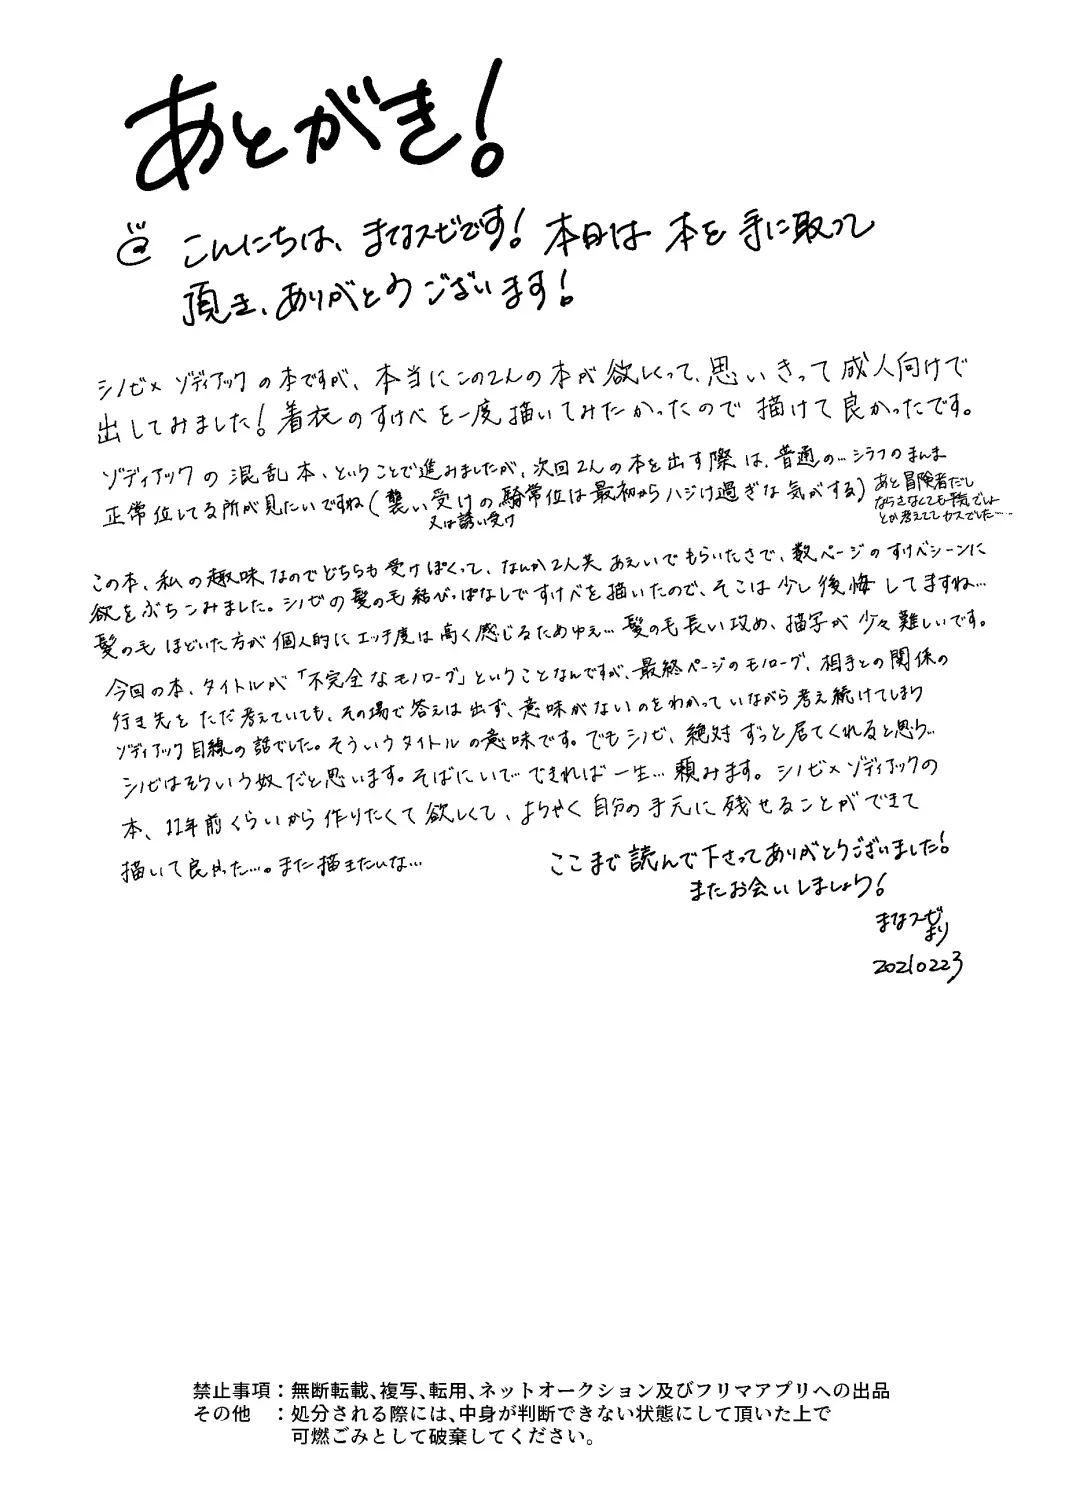 あとがき!
こんにちは、まなスビです! 本日は 本を 手に取って
頂き、ありがとうございます!
シノビ×ゾディアックの本ですが、本当にこの2人の本が欲しくって、思いきって成人向けで
出してみました! 着衣のすけべを一度描いてみたかったので描けて良かったです。
ゾディアックの混乱本、ということで進みましたが、次回2人の本を出す際は、普通の…シラフのまんま
正常位してる所が見たいですね(襲い受けの騎常位は最初からハジけ過ぎな気がする)
又は誘い受け
あと冒険者だし
ならさなくても平気でしょ
とか考えててカスでした……
この本、私の趣味なのでどちらも受けぽくって、なんか2人共あえいでもらいたさで、数ページのすけべシーンに
欲をぶちこみました。シノビの髪の毛結びっぱなしですけべを描いたので、そこは少し後悔してますね…
髪の毛ほどいた方が個人的にエッチ度は高く感じるためゆえ…髪の毛長い攻め、描写が少々難しいです。
今回の本、タイトルが「不完全なモノローグ」ということなんですが、最終ページのモノローグ、相手との関係の
行き先をただ考えていても、その場で答えは出ず、意味がないのをわかっていながら考え続けてしまう
ゾディアック目線の話でした。そういうタイトルの意味です。でもシノビ、絶対ずっと居てくれると思う…
シノビはそういう奴だと思います。そばにいて…できれば一生…頼みます。シノビ×ゾディアックの
本、11年前くらいから作りたくて欲しくて、ようやく自分の手元に残せることができて
描いて良かった…。また描きたいな…
ここまで読んで下さってありがとうございました!
またお会いしましょう!
まなスビ
より
20210223
禁止事項:無断転載、複写、転用、ネットオークション及びフリマアプリへの出品
その他 :処分される際には、中身が判断できない状態にして頂いた上で
可燃ごみとして破棄してください。